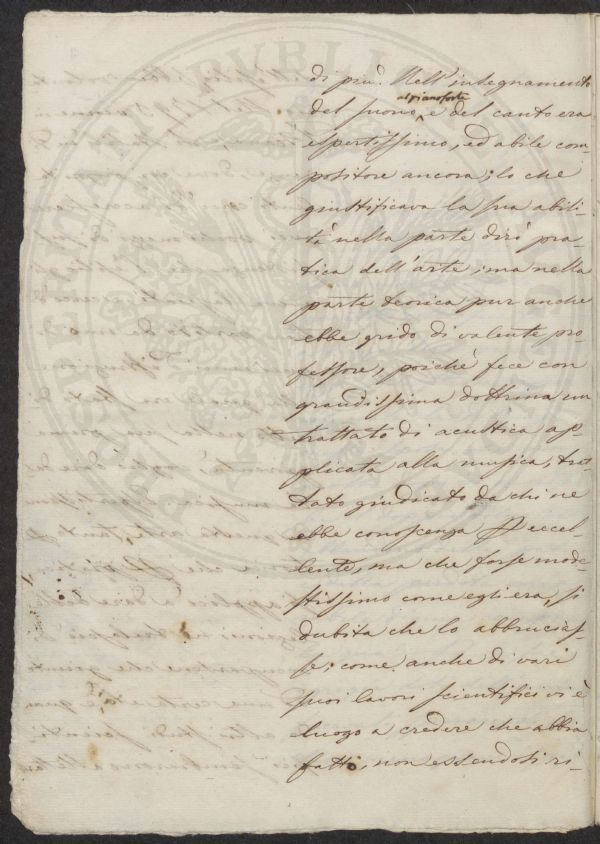 di più. Nell'insegnamento
al pianoforte
del suono, e del canto era
espertissimo, ed abile com
positore ancora; lo che
giustificava la sua abili-
tà nella parte dirò pra-
tica dell'arte, ma nella
parte teorica pur anche
ebbe grido di valente pro
fessore, poiché fece con
grandissima dottrina un
trattato di acustica ap-
plicata alla musica, trat
tato giudicato da chi ne
ebbe conoscenza per eccel-
lente, ma che forse mode-
stissimo come egli era, si
dubita che lo abbrucias-
se; come anche di vari
suoi lavori scientifici vi è
luogo a credere che abbia
fatto, non essendosi ri-